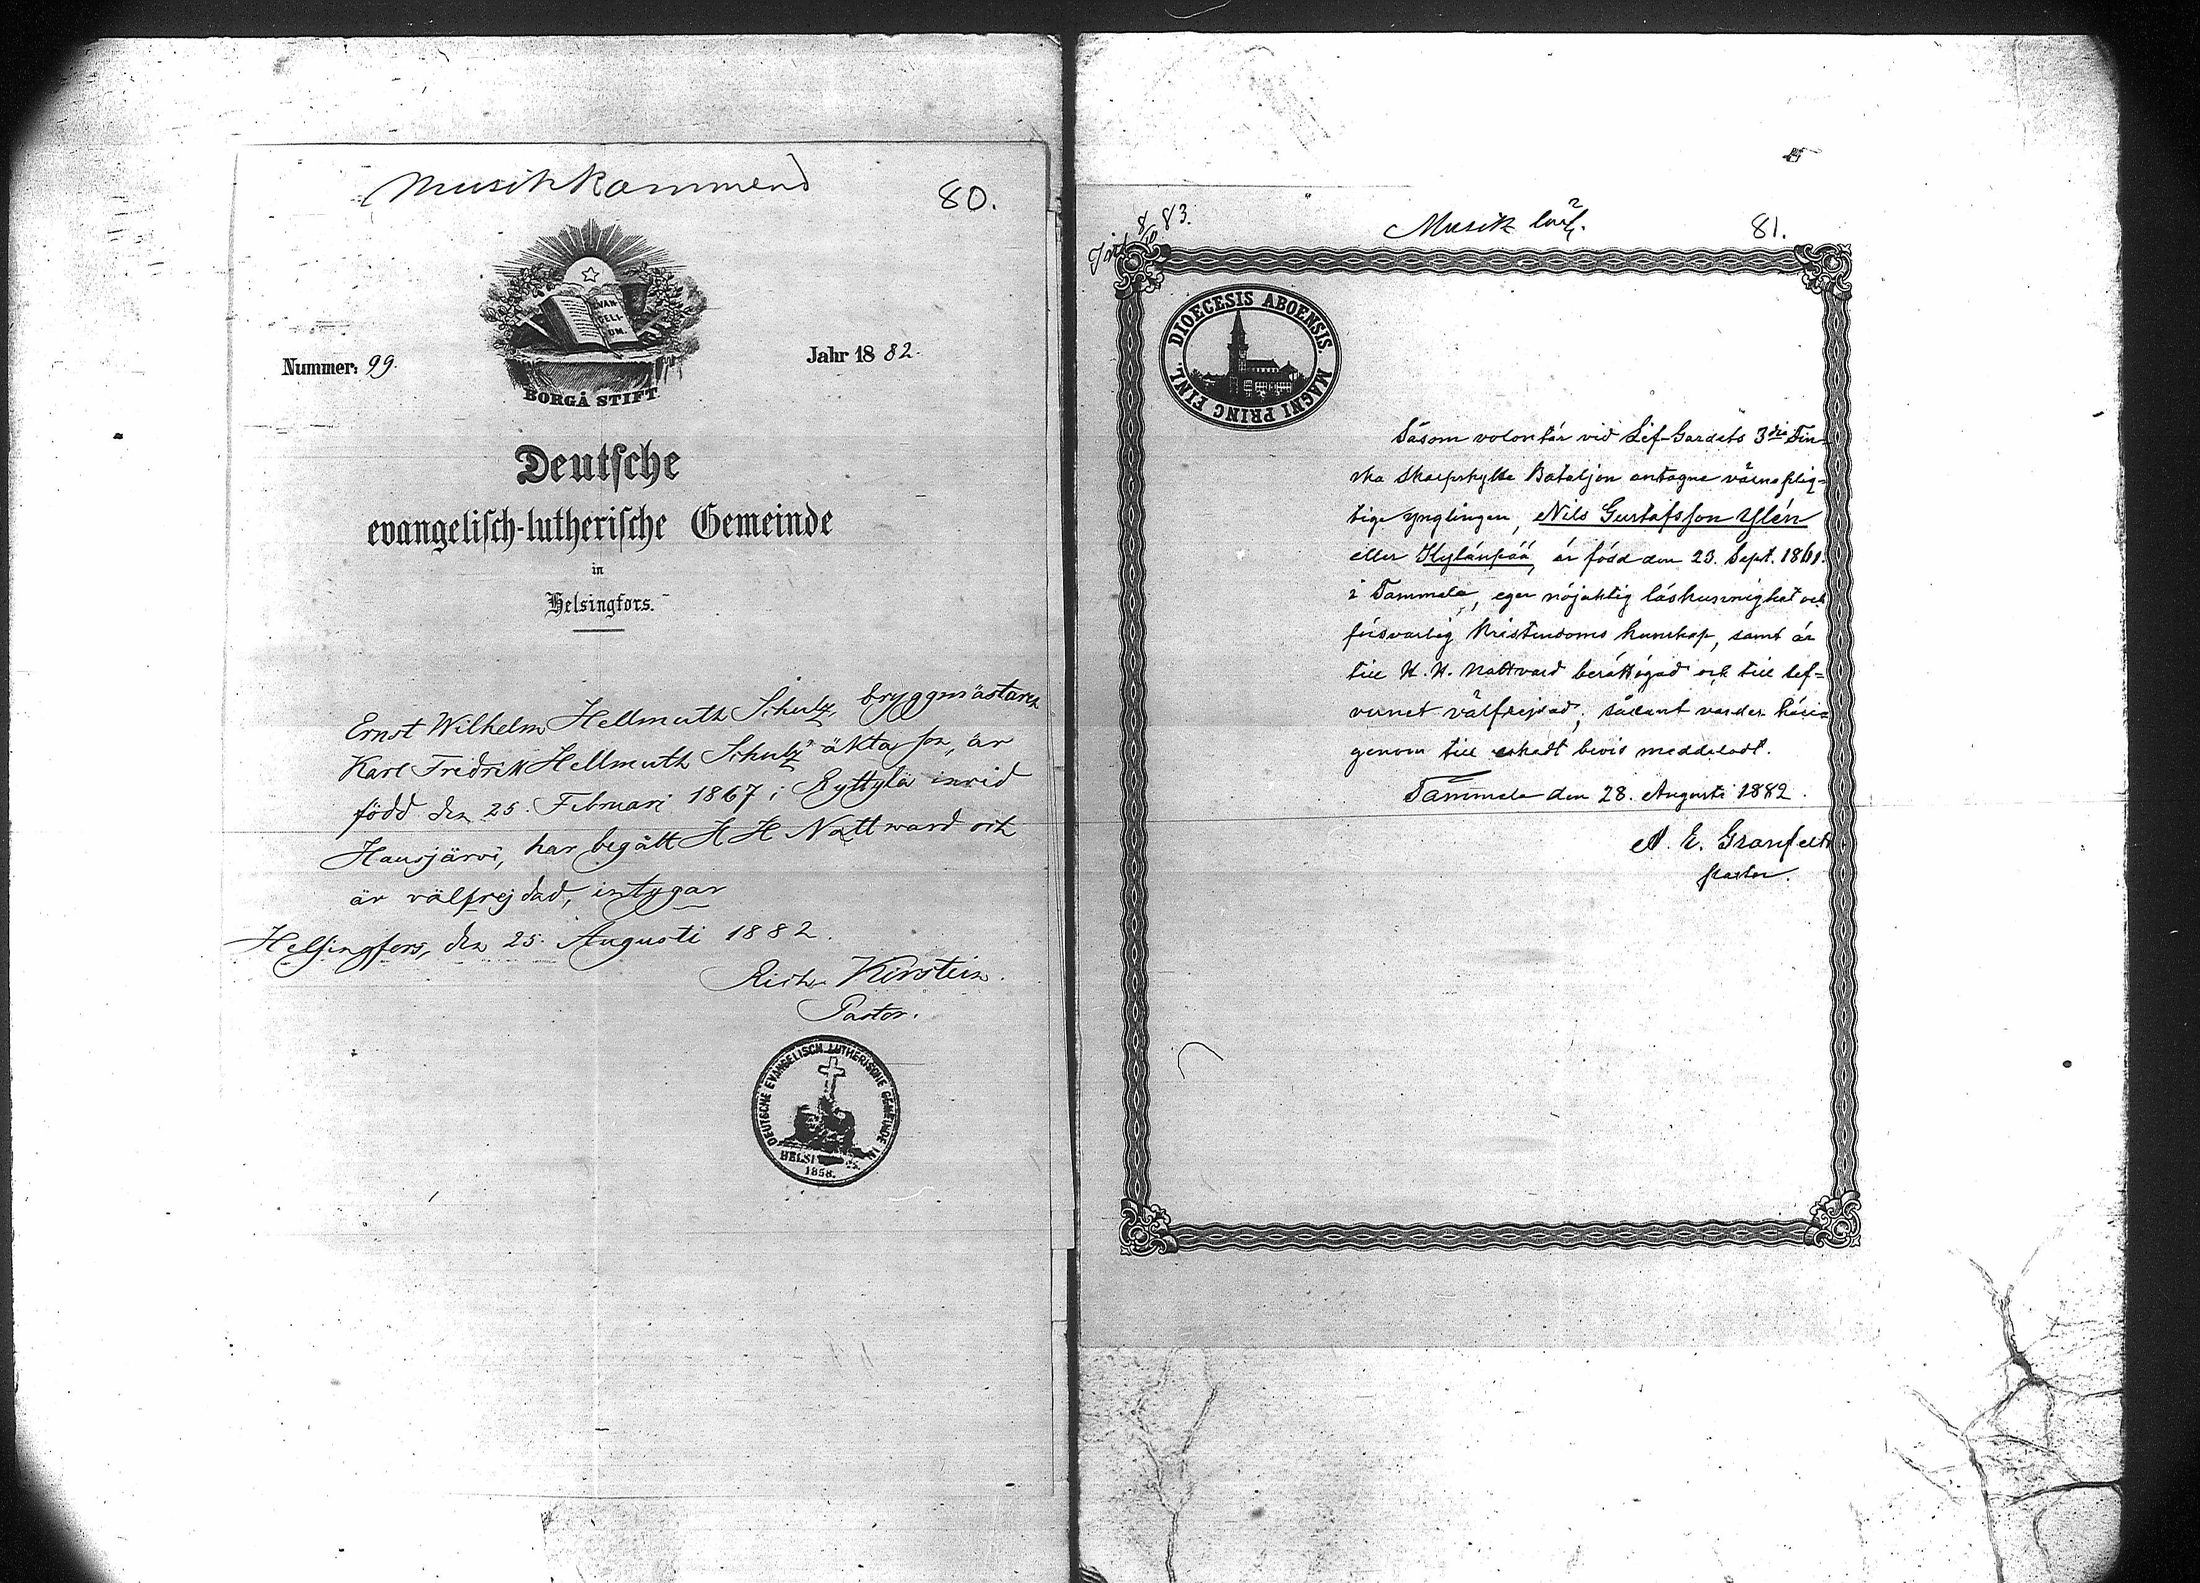 Musikkommend
80.
EVAN
GELI-
UM.
Nummer: 99.
Jahr 1882.
BORGÅ STIFT
Deutsche
evangelisch-lutherische Gemeinde
in
Helsingfors.
Ernst Wilhelm Hellmuth Schulz, bryggmästaren
Karl Fredrik Hellmuth Schulz' äkta son, är
född den 25. Februari 1867 i Ryttylä invid
Hausjärvi, har begått H H Nattward och
är välfrejdad, intygar
Helsingfors, den 25. Augusti 1882.
Rich. Kirstein.
Pastor.
DEUTSCHE EVANGELISCH LUTHERISCHE GEMEINDE IN
1858.
8/10 83.
Musik
81.
DIOECESIS ABOENSIS.
MAGNI PRINC FINL.
Såsom volontär vid Lif-Gardets 3dje Fin-
ska Skarpskytte Bataljon antagne värneplig-
tige ynglingen, Nils Gustafsson Ylén
eller Kylänpää, är född den 23. Sept. 1861.
i Tammela, eger nöjaktig läskunnighet och
försvarlig kristendoms kunskap, samt är
till H. H. Nattvard berättigad och till lef-
vernet välfrejdad; sådant varder häri-
genom till äskadt bevis meddeladt.
Tammela den 28. Augusti 1882.
A. E. Granfelt
pastor.